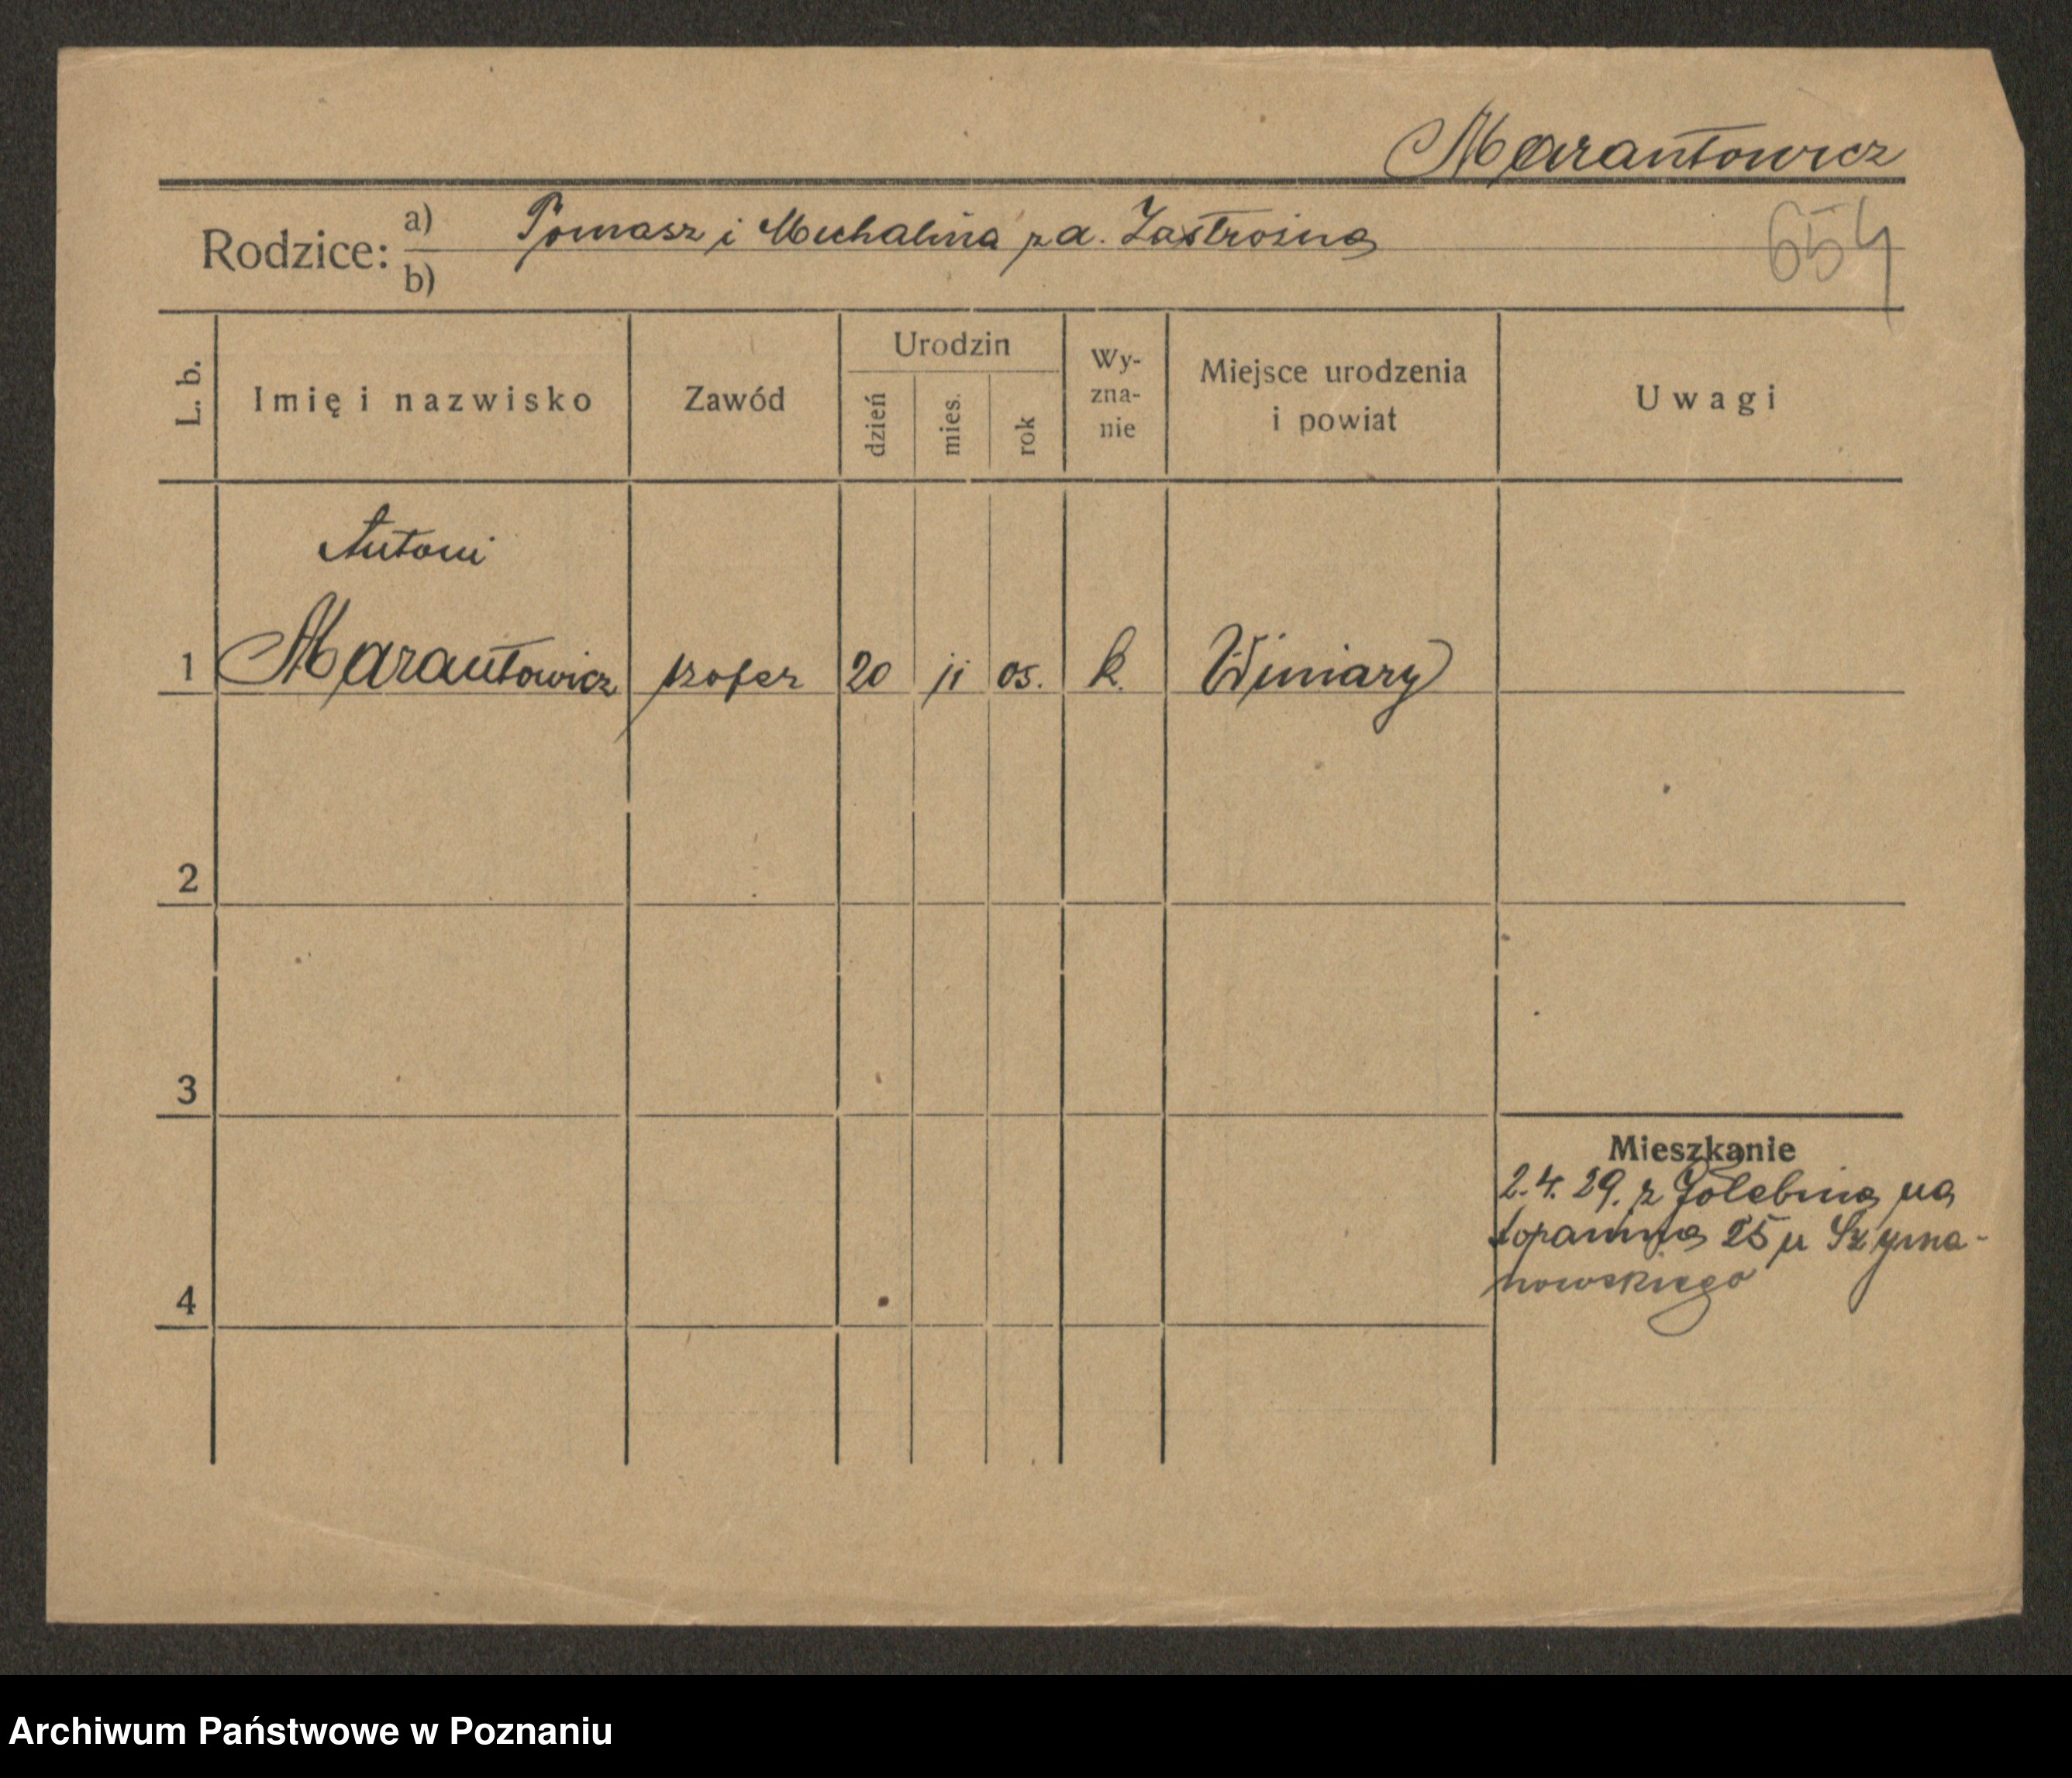 Marantowicz
Rodzice: a) Tomasz i Michalina z d.
b)
654
L. b.
Imię i nazwisko
Zawód
Urodzin
dzień
mies.
rok
Wy-
zna-
nie
Miejsce urodzenia
i powiat
Uwagi
Antoni
1 Marantowicz szofer 20 11 05. k. Winiary
2
3
Mieszkanie
2.4.29. z na
25 u Szyma-
nowskiego
4
Archiwum Państwowe w Poznaniu